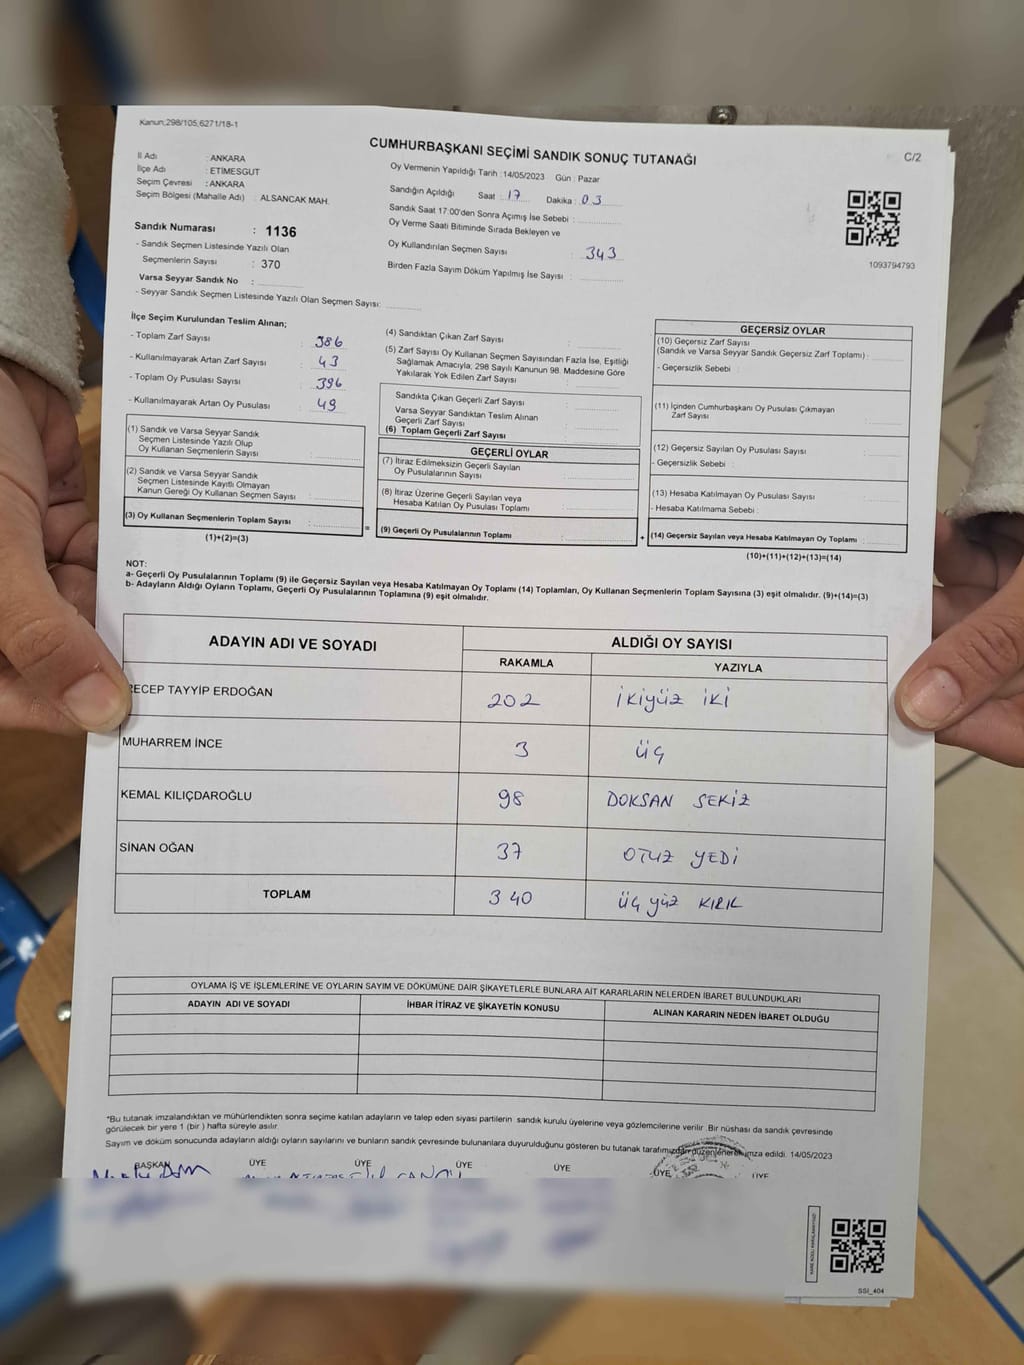 Kanun;298/105;6271/18-1
CUMHURBAŞKANI SEÇİMİ SANDIK SONUÇ TUTANAĞI
C/2
İl Adı : ANKARA
İlçe Adı : ETİMESGUT
Seçim Çevresi : ANKARA
Seçim Bölgesi (Mahalle Adı) : ALSANCAK MAH.
Oy Vermenin Yapıldığı Tarih :14/05/2023 Gün : Pazar
Sandığın Açıldığı Saat : 17 Dakika : 03
Sandık Saat 17:00'den Sonra Açımış İse Sebebi :
Oy Verme Saati Bitiminde Sırada Bekleyen ve
Oy Kullandırılan Seçmen Sayısı : 343
Birden Fazla Sayım Döküm Yapılmış İse Sayısı :
1093794793
Sandık Numarası : 1136
- Sandık Seçmen Listesinde Yazılı Olan
Seçmenlerin Sayısı : 370
Varsa Seyyar Sandık No :
- Seyyar Sandık Seçmen Listesinde Yazılı Olan Seçmen Sayısı:
İlçe Seçim Kurulundan Teslim Alınan;
- Toplam Zarf Sayısı : 386
- Kullanılmayarak Artan Zarf Sayısı : 43
- Toplam Oy Pusulası Sayısı : 396
- Kullanılmayarak Artan Oy Pusulası : 49
(1) Sandık ve Varsa Seyyar Sandık
Seçmen Listesinde Yazılı Olup
Oy Kullanan Seçmenlerin Sayısı :
(2) Sandık ve Varsa Seyyar Sandık
Seçmen Listesinde Kayıtlı Olmayan
Kanun Gereği Oy Kullanan Seçmen Sayısı :
(3) Oy Kullanan Seçmenlerin Toplam Sayısı :
(1)+(2)=(3)
=
(4) Sandıktan Çıkan Zarf Sayısı :
(5) Zarf Sayısı Oy Kullanan Seçmen Sayısından Fazla İse, Eşitliği
Sağlamak Amacıyla; 298 Sayılı Kanunun 98. Maddesine Göre
Yakılarak Yok Edilen Zarf Sayısı :
Sandıkta Çıkan Geçerli Zarf Sayısı :
Varsa Seyyar Sandıktan Teslim Alınan
Geçerli Zarf Sayısı :
(6) Toplam Geçerli Zarf Sayısı :
GEÇERLİ OYLAR
(7) İtiraz Edilmeksizin Geçerli Sayılan
Oy Pusulalarının Sayısı :
(8) İtiraz Üzerine Geçerli Sayılan veya
Hesaba Katılan Oy Pusulası Toplamı :
(9) Geçerli Oy Pusulalarının Toplamı :
+
GEÇERSİZ OYLAR
(10) Geçersiz Zarf Sayısı
(Sandık ve Varsa Seyyar Sandık Geçersiz Zarf Toplamı) :
- Geçersizlik Sebebi :
(11) İçinden Cumhurbaşkanı Oy Pusulası Çıkmayan
Zarf Sayısı :
(12) Geçersiz Sayılan Oy Pusulası Sayısı :
- Geçersizlik Sebebi :
(13) Hesaba Katılmayan Oy Pusulası Sayısı :
- Hesaba Katılmama Sebebi :
(14) Geçersiz Sayılan veya Hesaba Katılmayan Oy Toplamı :
(10)+(11)+(12)+(13)=(14)
NOT:
a- Geçerli Oy Pusulalarının Toplamı (9) ile Geçersiz Sayılan veya Hesaba Katılmayan Oy Toplamı (14) Toplamları, Oy Kullanan Seçmenlerin Toplam Sayısına (3) eşit olmalıdır. (9)+(14)=(3)
b- Adayların Aldığı Oyların Toplamı, Geçerli Oy Pusulalarının Toplamına (9) eşit olmalıdır.
ADAYIN ADI VE SOYADI ALDIĞI OY SAYISI
RAKAMLA YAZIYLA
RECEP TAYYİP ERDOĞAN 202 İKİYÜZ İKİ
MUHARREM İNCE 3 ÜÇ
KEMAL KILIÇDAROĞLU 98 DOKSAN SEKİZ
SİNAN OĞAN 37 OTUZ YEDİ
TOPLAM 340 ÜÇ YÜZ KIRK
OYLAMA İŞ VE İŞLEMLERİNE VE OYLARIN SAYIM VE DÖKÜMÜNE DAİR ŞİKAYETLERLE BUNLARA AİT KARARLARIN NELERDEN İBARET BULUNDUKLARI
ADAYIN ADI VE SOYADI İHBAR İTİRAZ VE ŞİKAYETİN KONUSU ALINAN KARARIN NEDEN İBARET OLDUĞU
*Bu tutanak imzalandıktan ve mühürlendikten sonra seçime katılan adayların ve talep eden siyasi partilerin sandık kurulu üyelerine veya gözlemcilerine verilir .Bir nüshası da sandık çevresinde
görülecek bir yere 1 (bir ) hafta süreyle asılır.
Sayım ve döküm sonucunda adayların aldığı oyların sayılarını ve bunların sandık çevresinde bulunanlara duyurulduğunu gösteren bu tutanak tarafımızdan düzenlenerek imza edildi. 14/05/2023
BAŞKAN ÜYE ÜYE ÜYE ÜYE ÜYE ÜYE
SSI_404